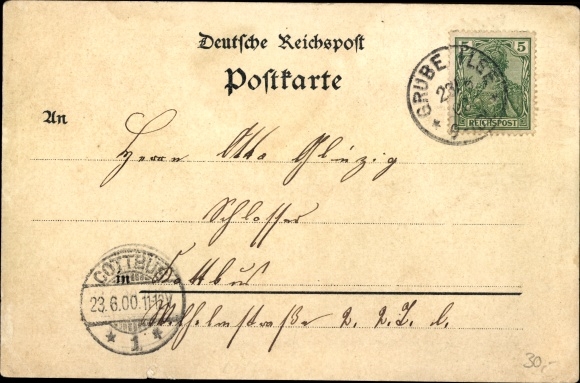 Deutsche Reichspost
Postkarte
5
REICHSPOST
GRUBE
23
An
Herrn Otto
Schlosser
in Cottbus
COTTBUS
23.6.00.11-12V
* 1 *
Wilhelmstraße 2. 2. Z. l.
30,-